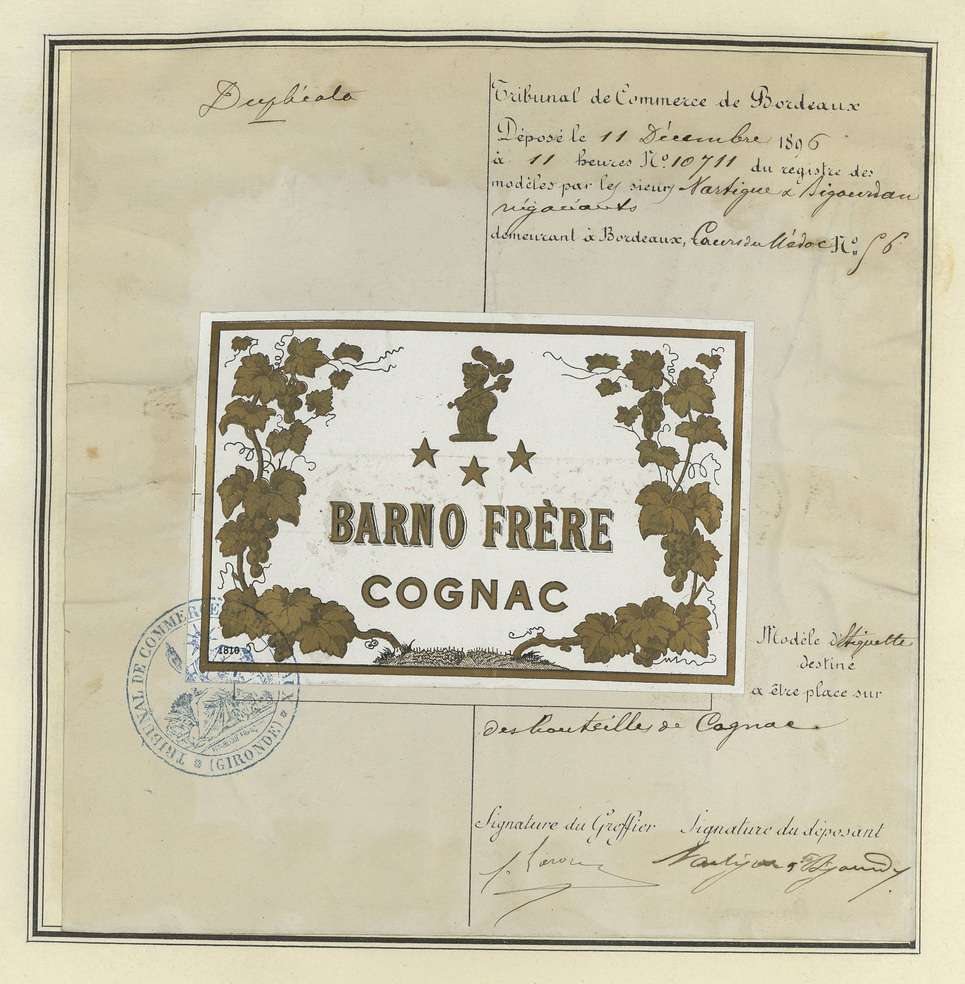 Duplicata
Tribunal de Commerce de Bordeaux
Déposé le 11 Décembre 1896
à 11 heures No. 10711 du registre des
modèles par les sieurs Nartigue & Bigourdan
négociants
demeurant à Bordeaux, Cours du Médoc No. 56
BARNO FRÈRE
COGNAC
1810
TRIBUNAL DE COMMERCE
(GIRONDE)
Modèle d'étiquette
destiné
a être place sur
des bouteilles de Cognac.
Signature du Greffier Signature du déposant
Nartigue & Bigourdan